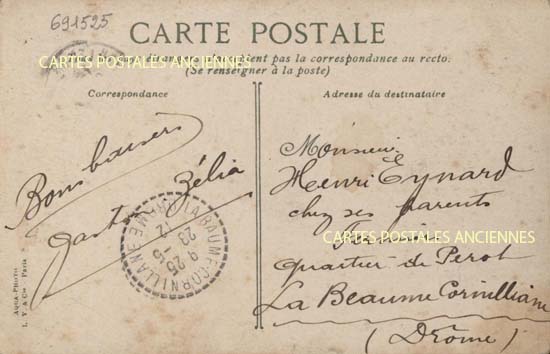 691525
CARTE POSTALE
pas la correspondance au recto.
(Se renseigner à la poste)
CARTES POSTALES ANCIENNES
Correspondance
Adresse du destinataire
Bons baisers
Zélia
Monsieur
Henri Eynard
chez ses parents
CARTES POSTALES ANCIENNES
quartier de Perot
La Beaume Cornilliane
(Drôme)
LA BAUME-CORNILLIANE DROME
9 25
AQUA-PHOTO
L. V. & Cie Paris